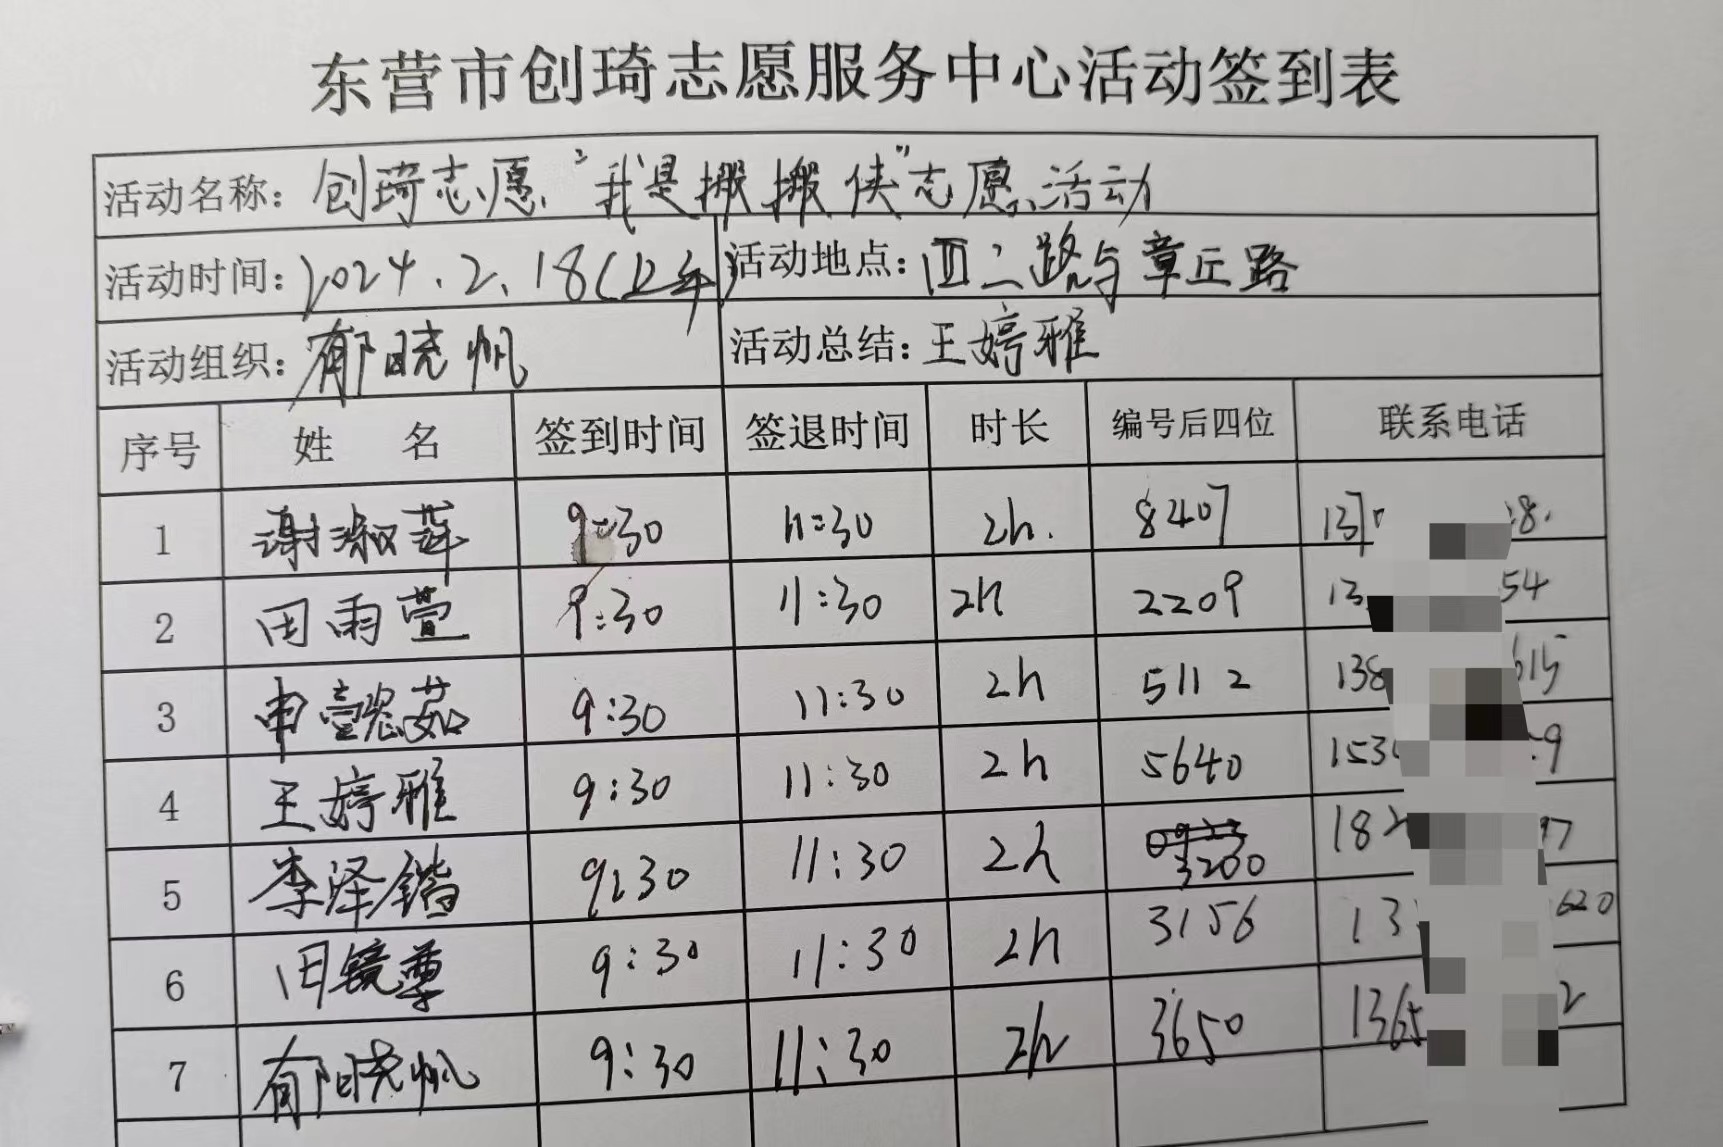 东营市创琦志愿服务中心活动签到表
活动名称: 创琦志愿"我是搬搬侠"志愿活动
活动时间: 2024.2.18(上午) 活动地点: 西二路与章丘路
活动组织: 郁晓帆 活动总结: 王婷雅
序号 姓 名 签到时间 签退时间 时长 编号后四位 联系电话
1 谢淑萍 9:30 11:30 2h. 8407
2 田雨萱 9:30 11:30 2h 2209 54
3 申懿茹 9:30 11:30 2h 5112 138 615
4 王婷雅 9:30 11:30 2h 5640 153 9
5 李泽锴 9:30 11:30 2h 3200 182 97
6 田镜尊 9:30 11:30 2h 3156 13 620
7 郁晓帆 9:30 11:30 2h 3650 1365 2